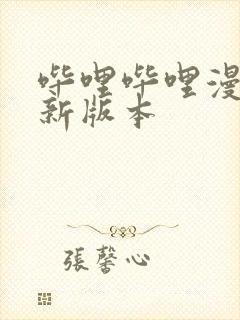 哔哩哔哩漫
新版本
張馨心